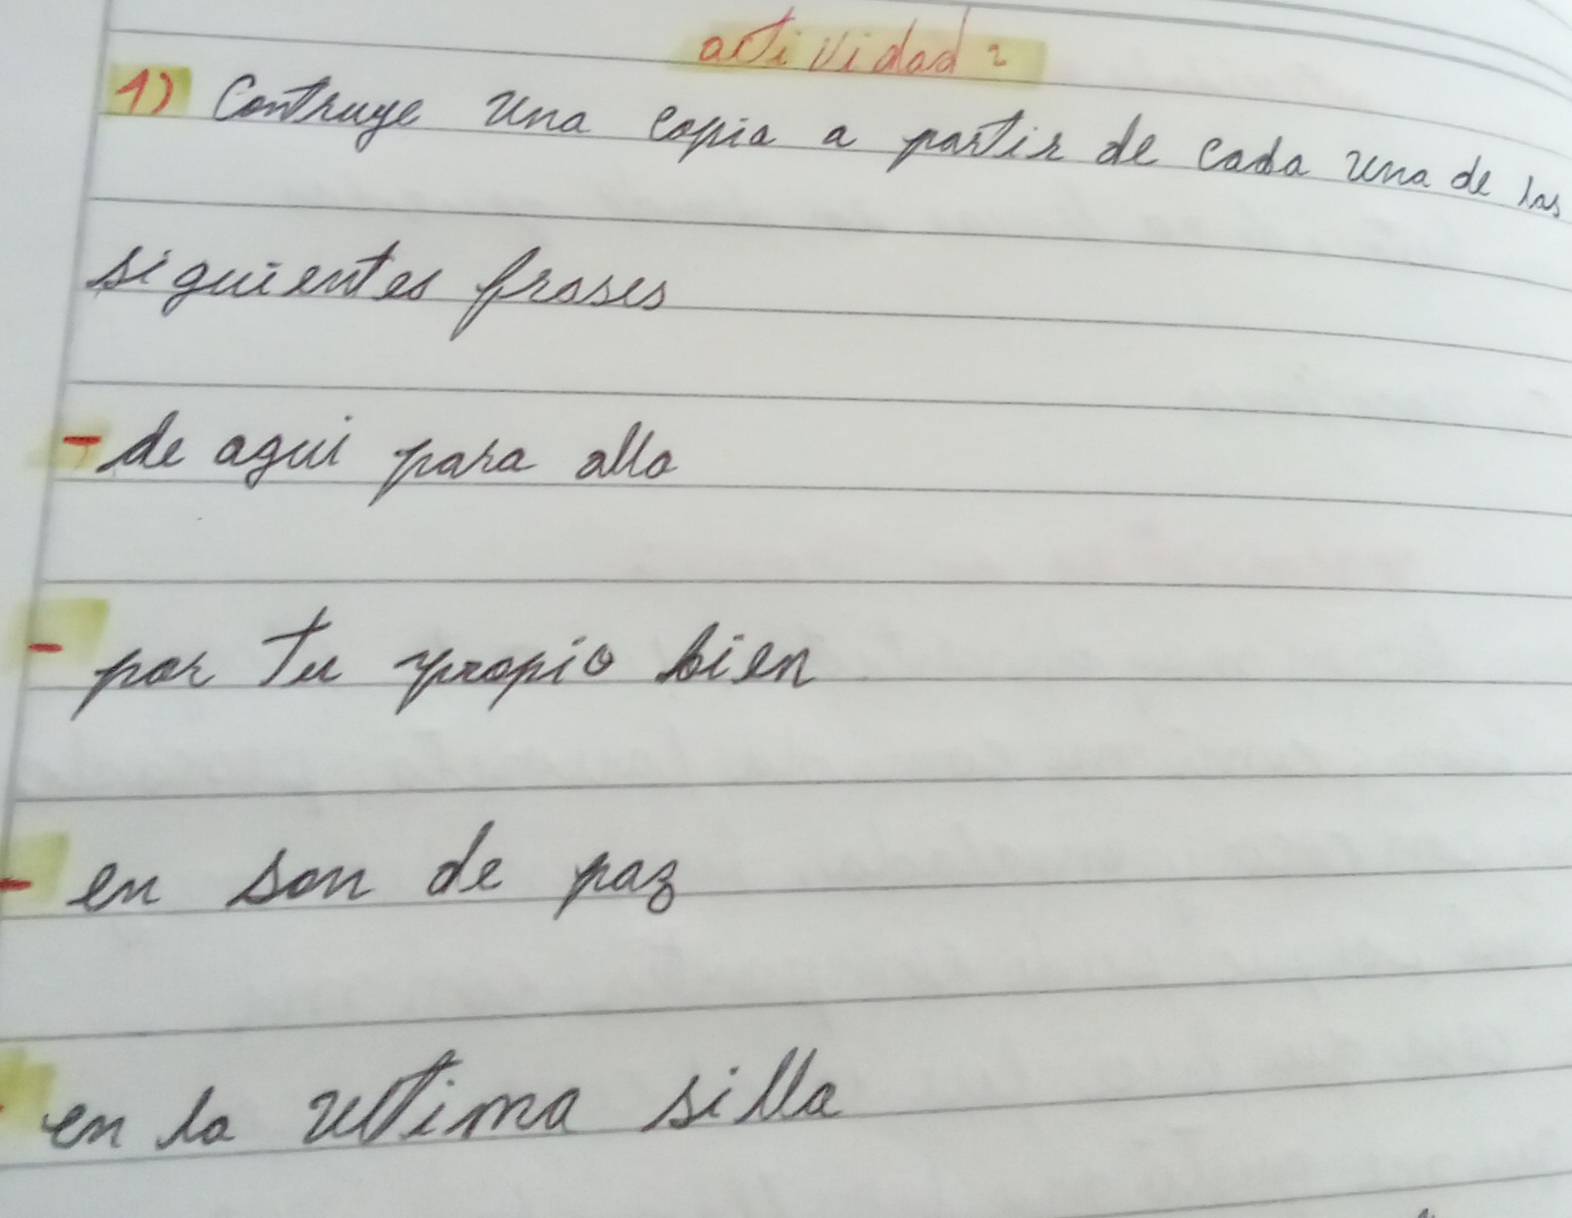 actividad 2
1) Contruye una copia a partir de cada una de las
siguientes frases
- de aqui para alla
- por tu propio bien
- en son de paz
- en la ultima silla